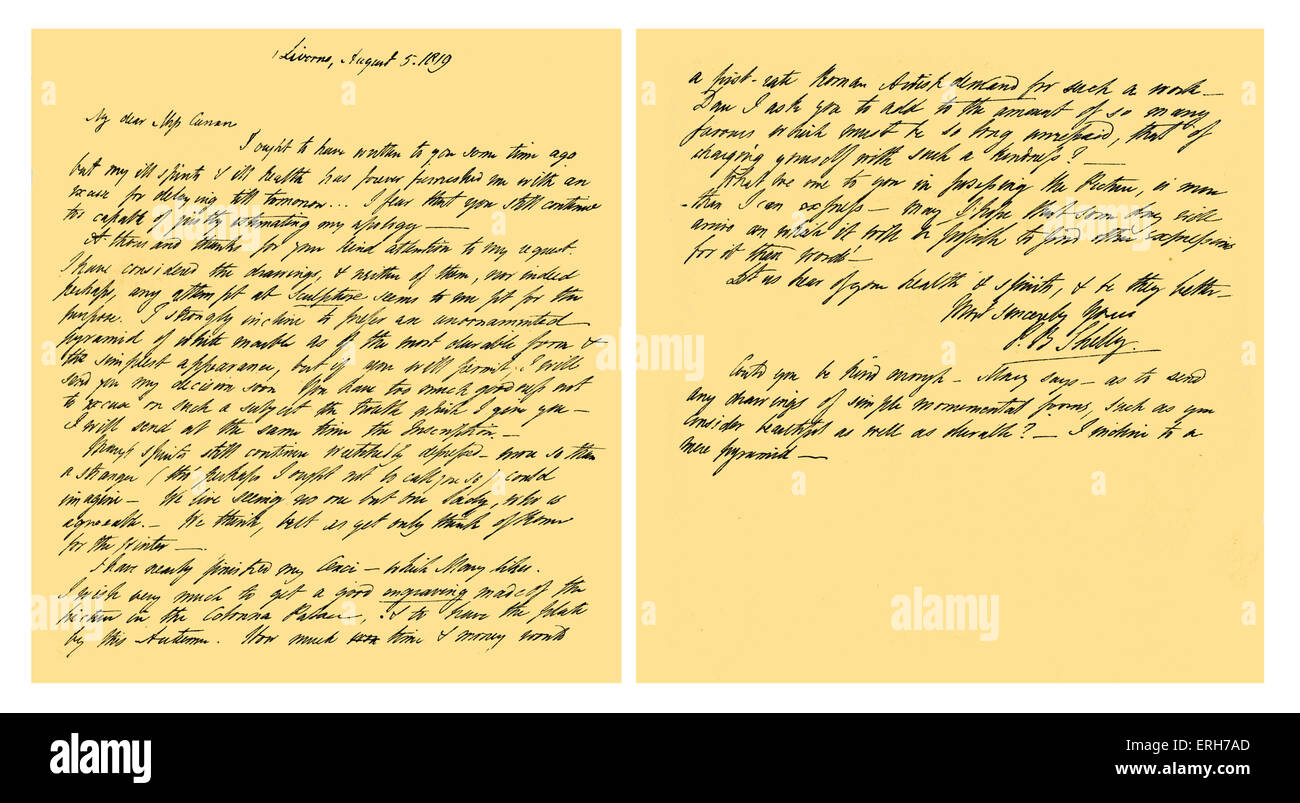 Livorno, August 5. 1819
My dear Miss Curran
I ought to have written to you some time ago
but my ill spirits & ill health has forever furnished me with an
excuse for delaying till tomorrow... I fear that you still continue
too capable of justly estimating my apology —
A thousand thanks for your kind attention to my request.
I have considered the drawings, & neither of them, nor indeed
perhaps, any attempt at Sculpture seems to me fit for the
purpose. I strongly incline to prefer an unornamented
pyramid of white marble as of the most durable form &
the simplest appearance, but if you will permit, I will
send you my decision soon You have too much goodness not
to excuse on such a subject the trouble which I give you —
I will send at the same time the Inscription. —
Mary's spirits still continue wretchedly depressed — more so than
a stranger (tho' perhaps I ought not to call you so) could
imagine — We live seeing no one but one Lady, who is
agreeable. — We think, but as yet only think of Rome
for the Winter —.
I have nearly finished my Cenci — which Mary likes.
I wish very much to get a good engraving made of the
picture in the Colonna Palace, & to have the plate
by this Autumn. How much time & money would
a first-rate Roman Artist demand for such a work —
Dare I ask you to add to the amount of so many
favours which must be so long unrepaid, that of
charging yourself with such a kindness? —
What we owe to you in possessing the Picture, is more
than I can express — may I hope that some day will
arrive on which it will be possible to find other expressions
for it than words —
Let us hear of your health & spirits, & be they better —
Most sincerely Yours
P. B Shelley.
Could you be kind enough — Mary says — as to send
any drawings of simple monumental forms, such as you
consider beautiful as well as durable? — I incline to a
mere pyramid —
a
alamy
alamy
alamy
Image ID: ERH7AD
www.alamy.com